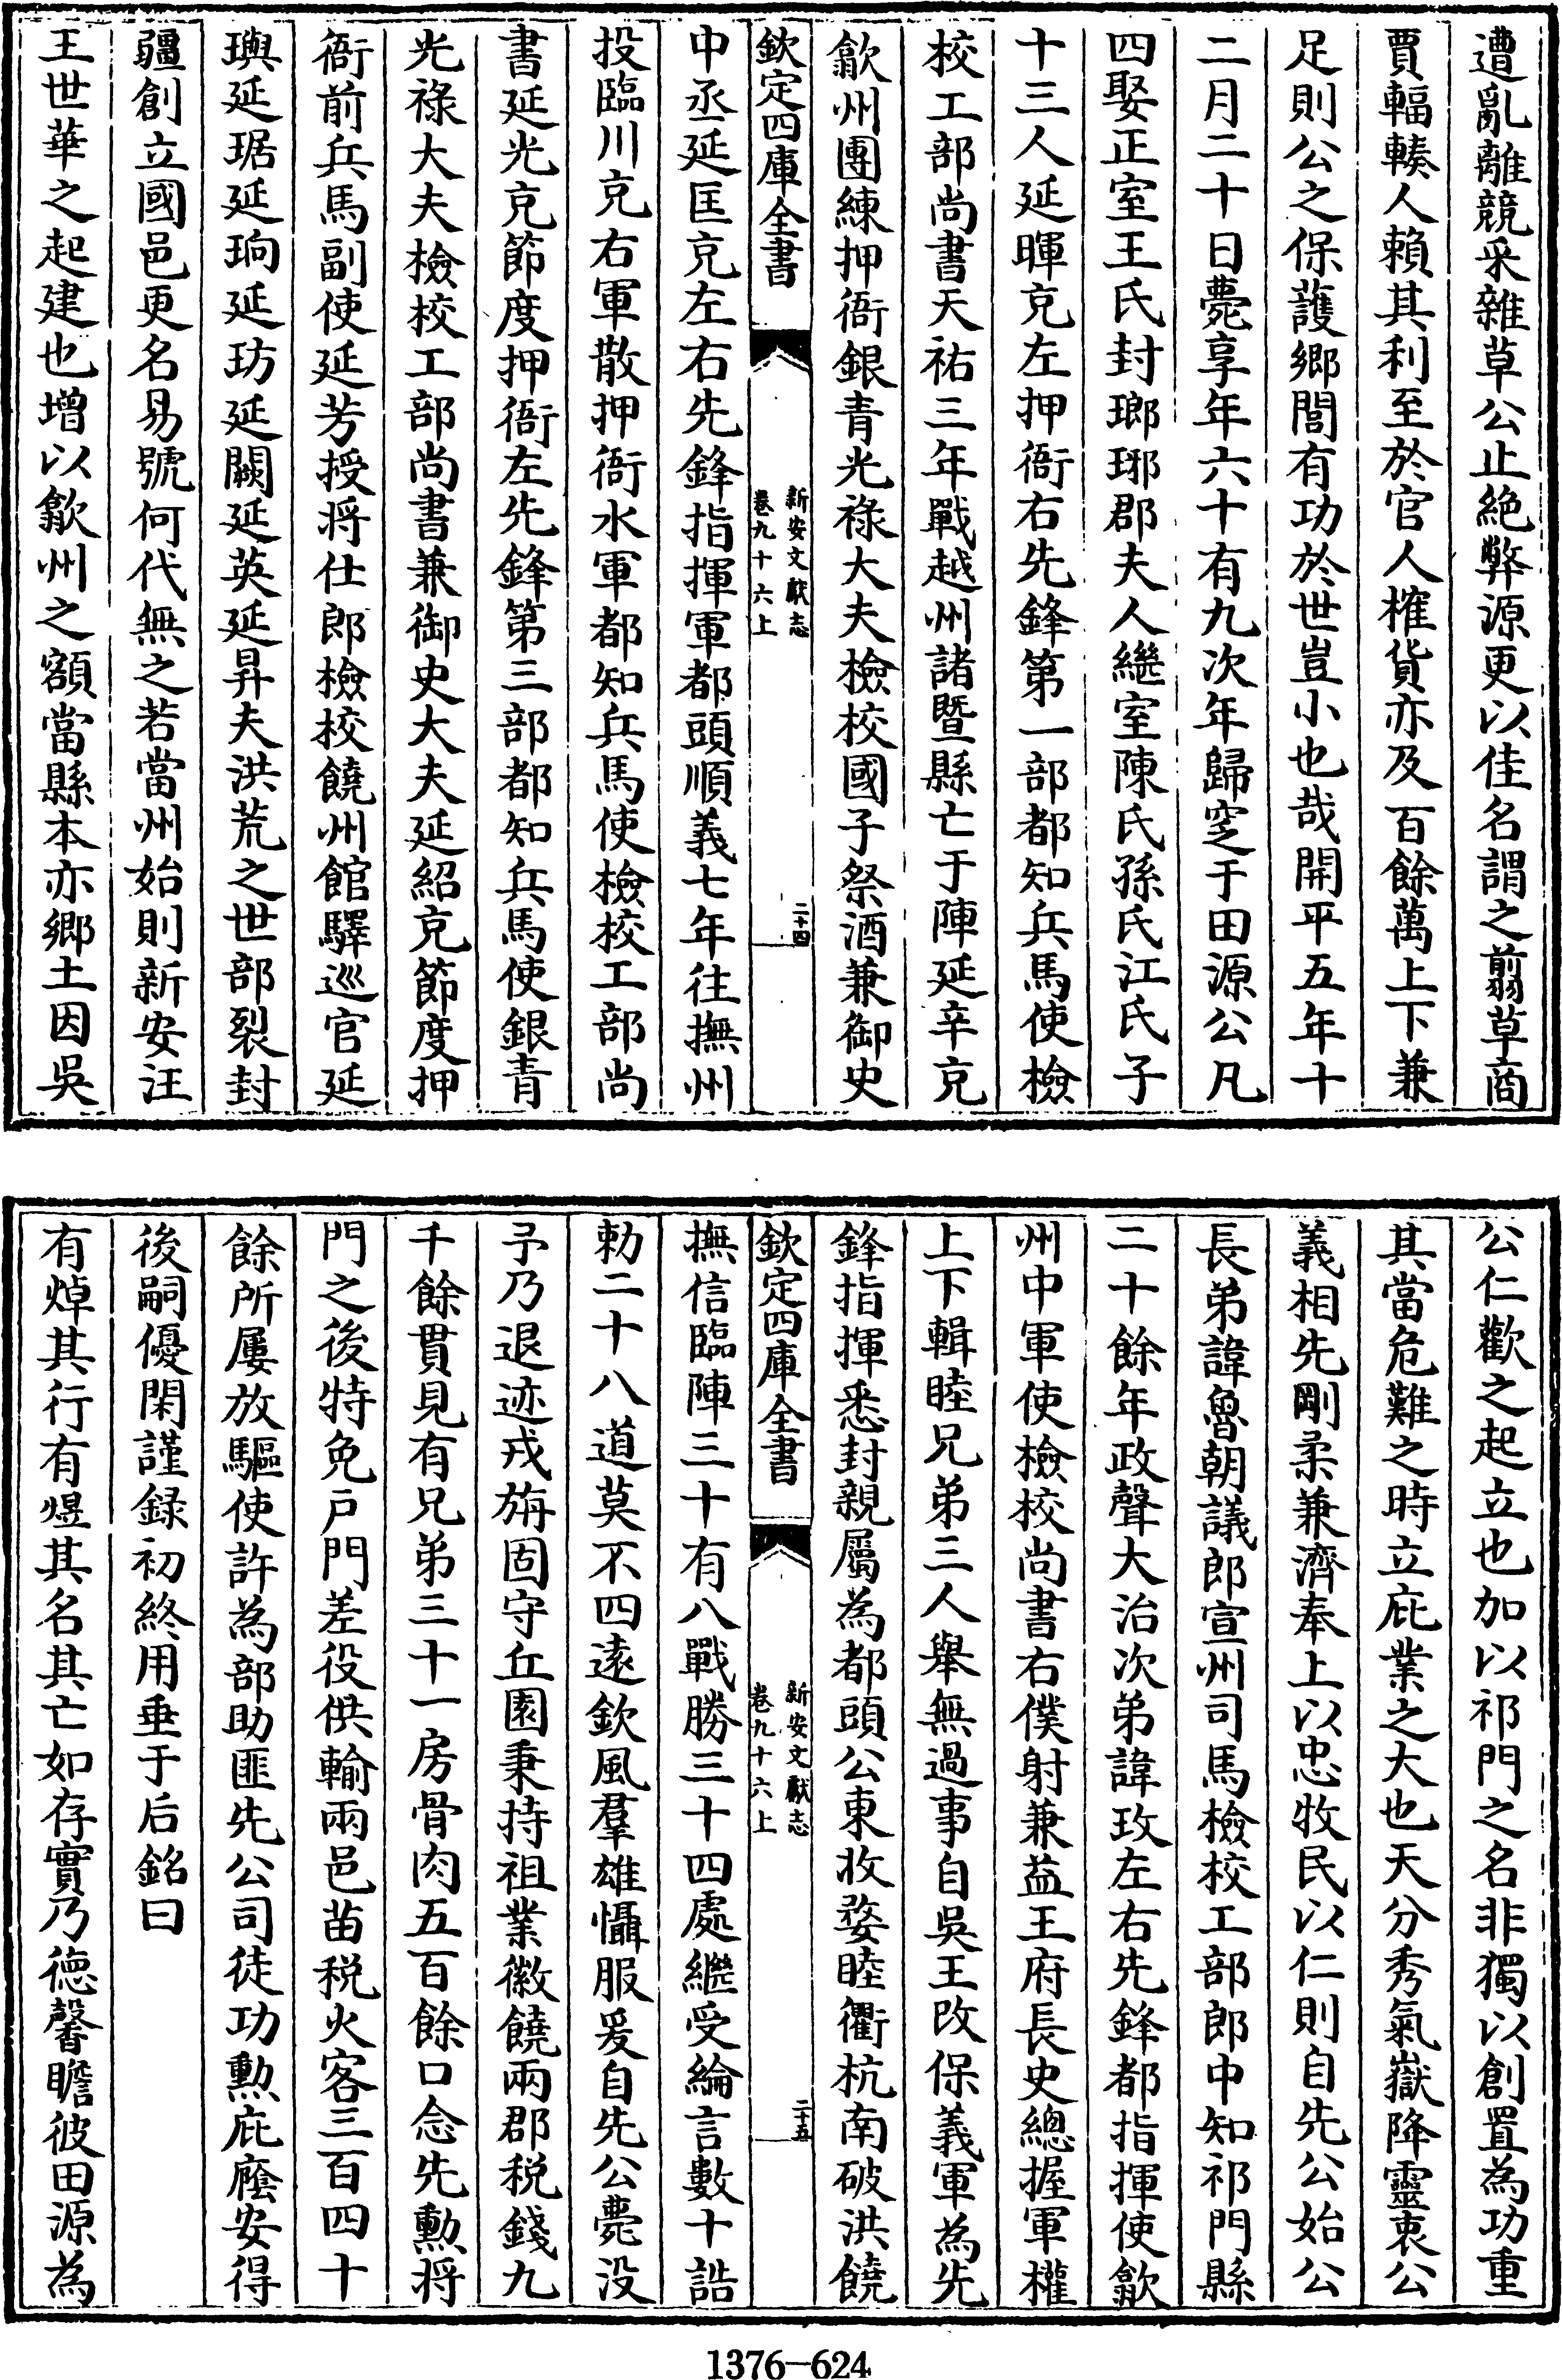 遭亂離競采雜草公止絶弊源更以佳名謂之翦草商
賈輻輳人賴其利至於官人榷貨亦及百餘萬上下兼
足則公之保護鄉閭有功於世豈小也哉開平五年十
二月二十日薨享年六十有九次年歸窆于田源公凡
四娶正室王氏封瑯琊郡夫人繼室陳氏孫氏江氏子
十三人延暉克左押衙右先鋒第一部都知兵馬使檢
校工部尚書天祐三年戰越州諸暨縣亡于陣延辛克
歙州團練押衙銀青光祿大夫檢校國子祭酒兼御史
欽定四庫全書
新安文獻志
卷九十六上
二十四
中丞延匡克左右先鋒指揮軍都頭順義七年往撫州
投臨川克右軍散押衙水軍都知兵馬使檢校工部尚
書延光克節度押衙左先鋒第三部都知兵馬使銀青
光祿大夫檢校工部尚書兼御史大夫延紹克節度押
衙前兵馬副使延芳授将仕郎檢校饒州館驛巡官延
璵延琚延珦延玏延闕延英延昇夫洪荒之世部裂封
疆創立國邑更名易號何代無之若當州始則新安汪
王世華之起建也增以歙州之額當縣本亦鄉土因吳
公仁歡之起立也加以祁門之名非獨以創置為功重
其當危難之時立庇業之大也天分秀氣嶽降靈衷公
義相先剛柔兼濟奉上以忠牧民以仁則自先公始公
長弟諱魯朝議郎宣州司馬檢校工部郎中知祁門縣
二十餘年政聲大治次弟諱玫左右先鋒都指揮使歙
州中軍使檢校尚書右僕射兼益王府長史總握軍權
上下輯睦兄弟三人舉無過事自吳王改保義軍為先
鋒指揮悉封親屬為都頭公東收婺睦衢杭南破洪饒
欽定四庫全書
新安文獻志
卷九十六上
二十五
撫信臨陣三十有八戰勝三十四處繼受綸言數十誥
勅二十八道莫不四遠欽風羣雄懾服爰自先公薨没
予乃退迹戎旃固守丘園秉持祖業徽饒兩郡税錢九
千餘貫見有兄弟三十一房骨肉五百餘口念先勲将
門之後特免戸門差役供輸兩邑苗税火客三百四十
餘所屢放驅使許為部助匪先公司徒功勲庇廕安得
後嗣優閑謹録初終用垂于后銘曰
有焯其行有煜其名其亡如存實乃德馨瞻彼田源為
1376-624